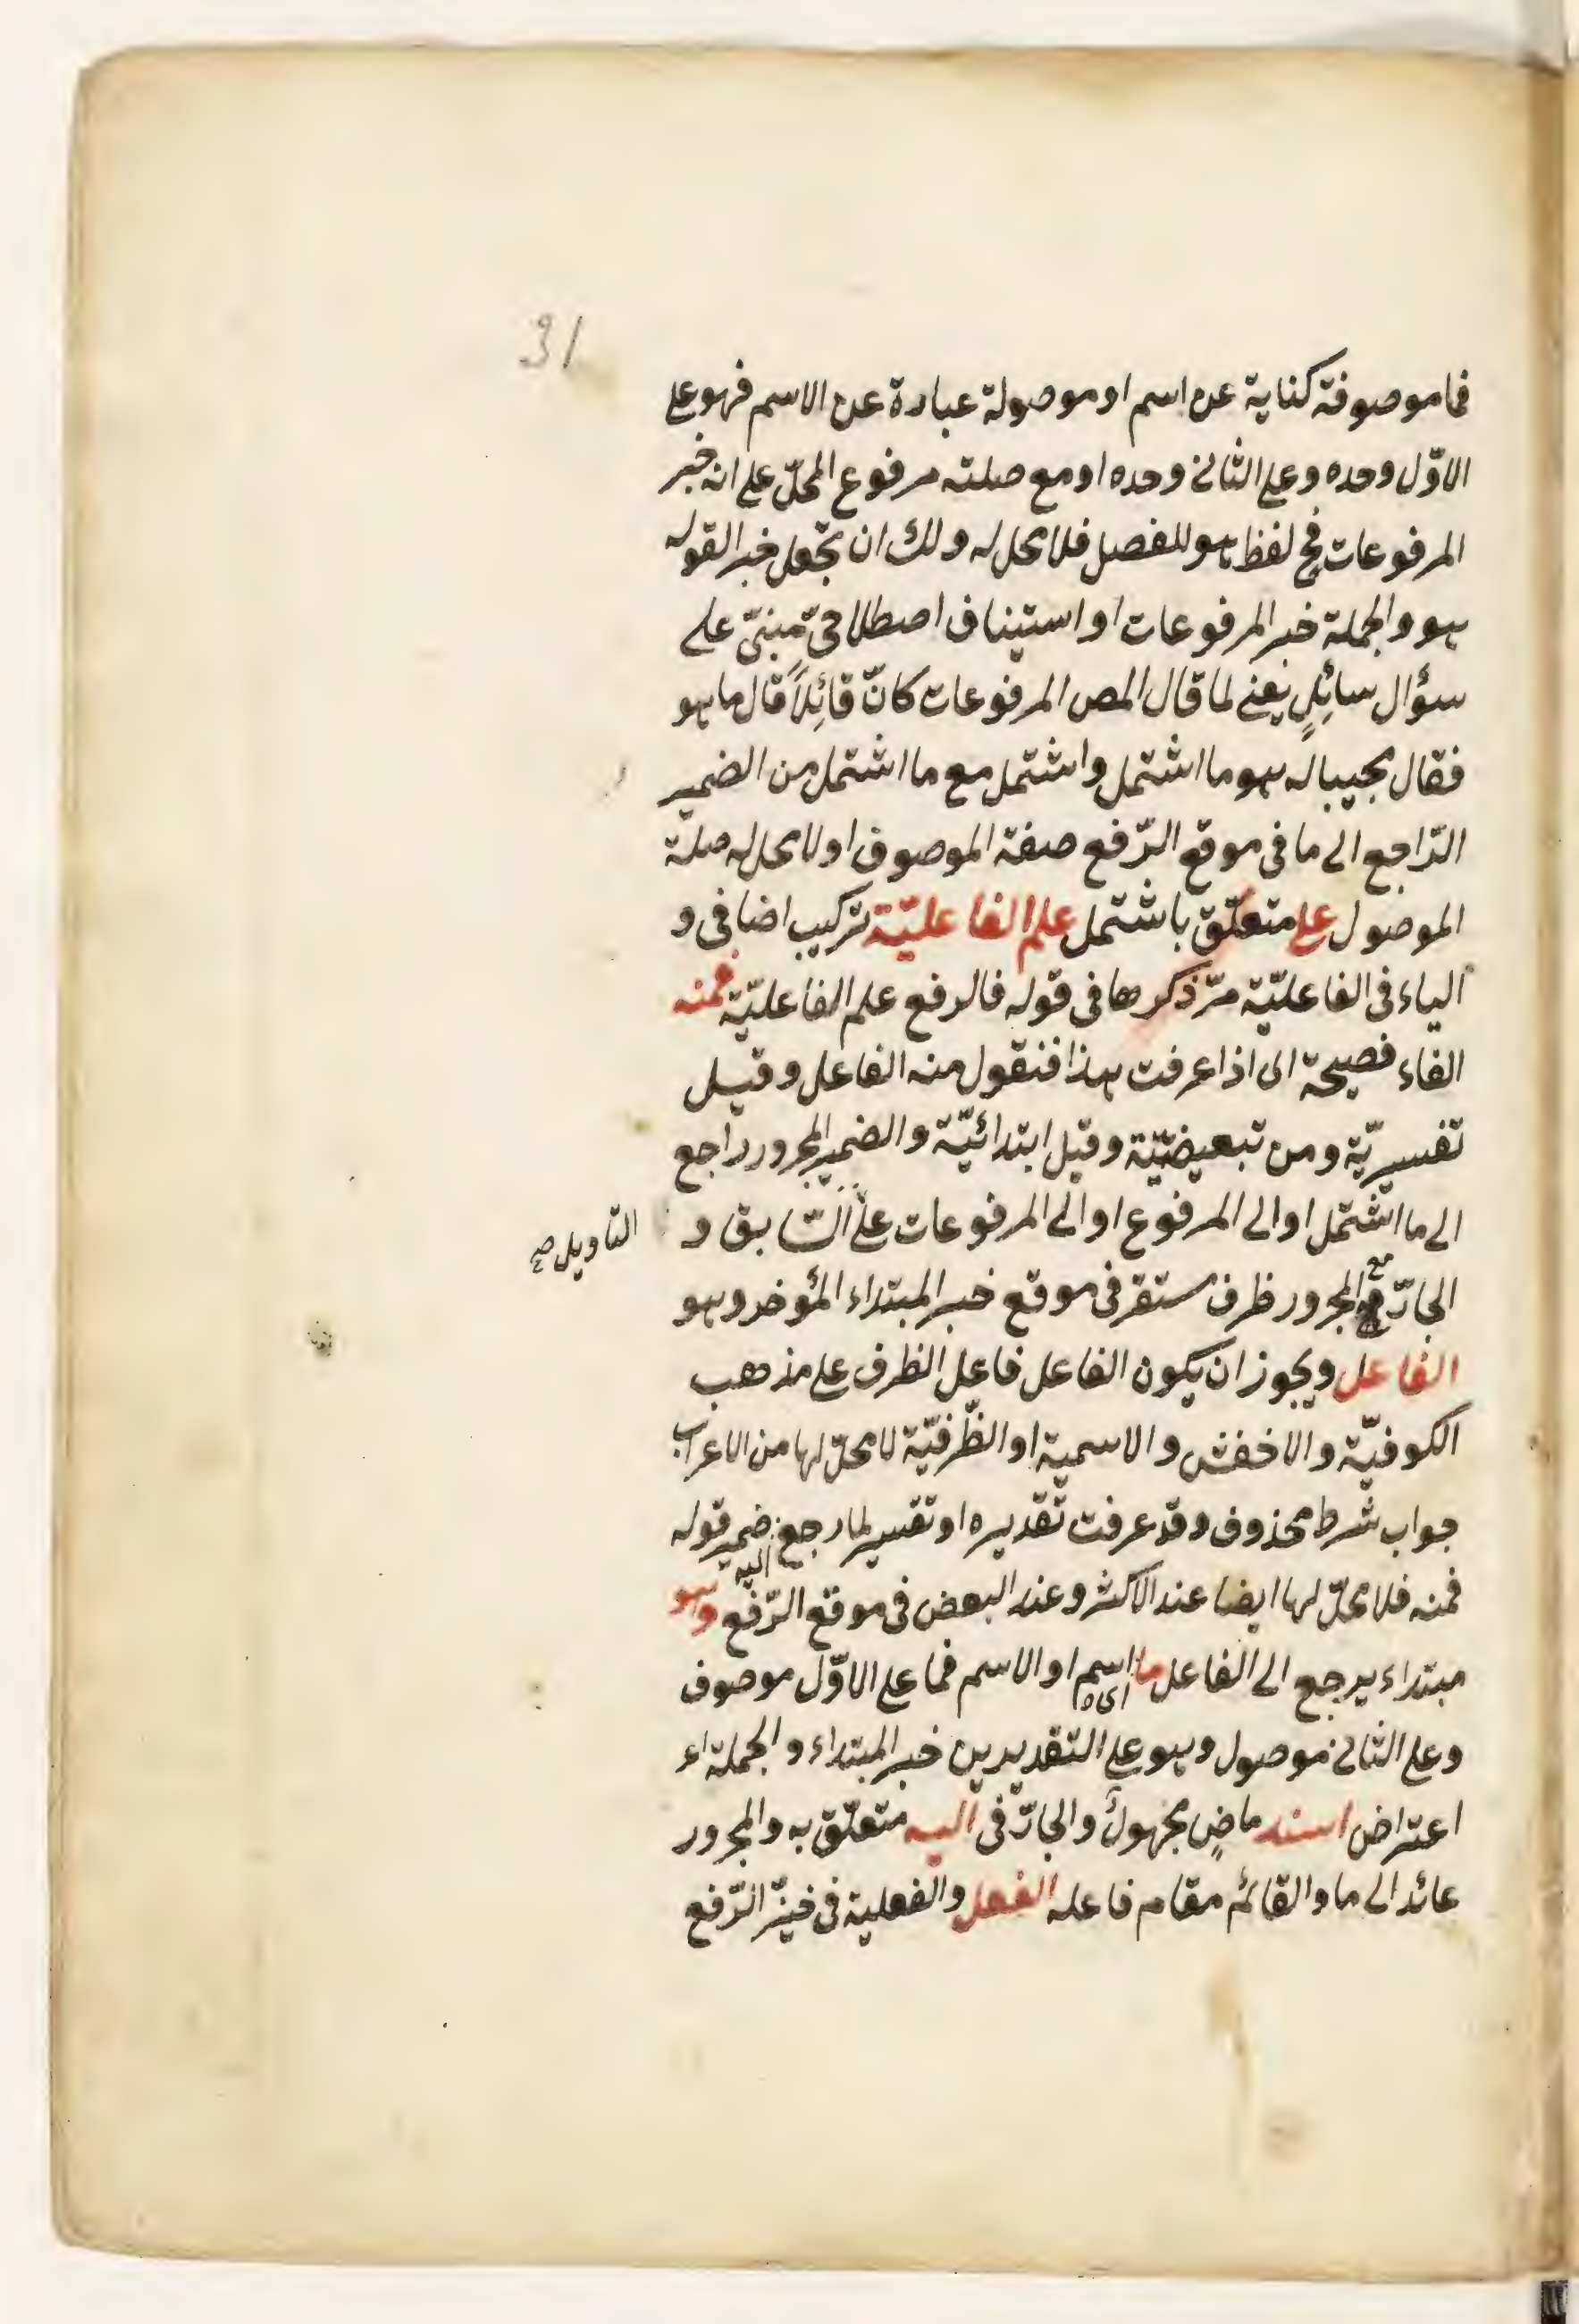 31
فما موصوفة كناية عن اسم او موصولة عبارة عن الاسم فهو على
الاوّل وحده وعلى الثانى وحده او مع صلته مرفوع المحلّ على انه خبر
المرفوعات فح لفظ هو للفصل فلا محل له ولك ان تجعل خبر القوله
هو والجملة خبر المرفوعات او استيناف اصطلاحىّ مبنىّ على
سؤال سائلٍ يعنى لما قال المص المرفوعات كانّ قائلاً قال ما هو
فقال مجيبا له هو ما اشتمل واشتمل مع ما اشتمل من الضمير
الرّاجع الى ما فى موقع الرّفع صفة الموصوف او لا محل له صلة
الموصول على متعلّق باشتمل علم الفاعليّة تركيب اضافى و
الياء فى الفاعليّة مرّ ذكرها فى قوله فالرفع علم الفاعليّة فمنه
الفاء فصيحة اى اذا عرفت هذا فنقول منه الفاعل وقيل
تفسيريّة ومن تبعيضيّة وقيل ابتدائيّة والضمير المجرور راجع
الى ما اشتمل او الى المرفوع او الى المرفوعات على السّابق و
التاويل صح
الجارّ مع المجرور ظرف مستقر فى موقع خبر المبتداء المؤخر وهو
الفاعل ويجوز ان يكون الفاعل فاعل الظرف على مذهب
الكوفيّة والاخفش والاسمية او الظّرفيّة لا محلّ لها من الاعراب
جواب شرط محذوف وقد عرفت تقديره او تفسير لما رجع اليه ضمير قوله
فمنه فلا محلّ لها ايضا عند الاكثر وعند البعض فى موقع الرّفع وهو
مبتداء يرجع الى الفاعل ما اى اسم او الاسم فما على الاوّل موصوف
وعلى الثانى موصول وهو على التقديرين خبر المبتداء والجملة
اعتراض اسند ماضٍ مجهول والجارّ فى اليه متعلّق به والمجرور
عائد الى ما والقائم مقام فاعله الفعل والفعلية فى حيّز الرّفع